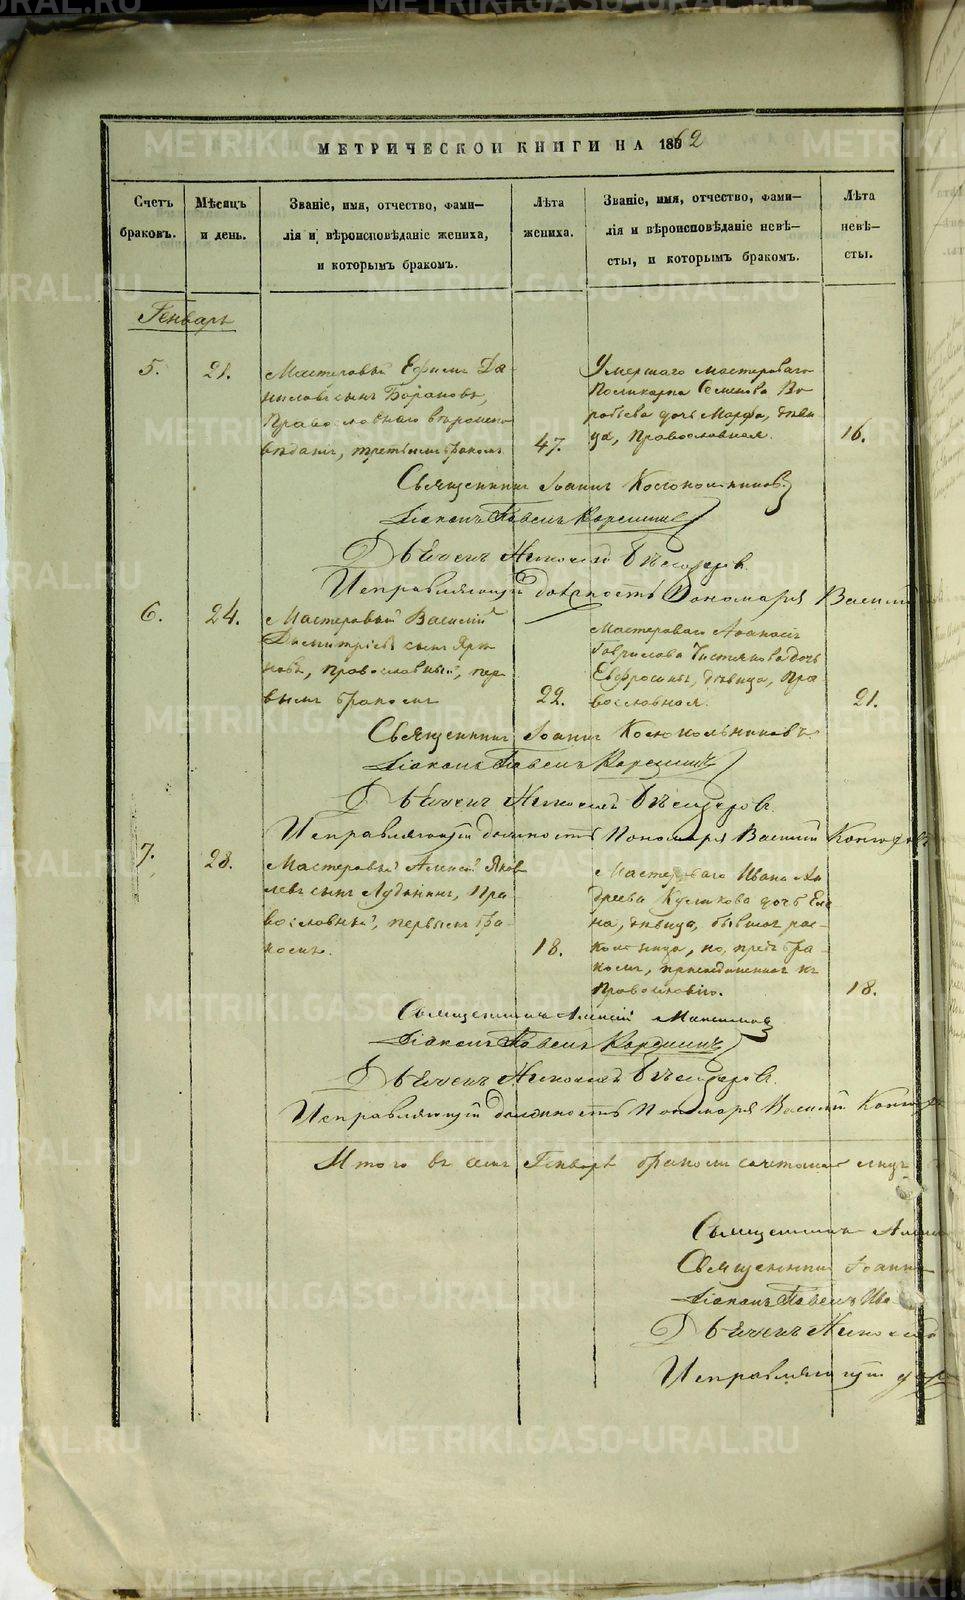 МЕТРИЧЕСКОЙ КНИГИ НА 1862
Счетъ браковъ.
Мѣсяцъ и день.
Званіе, имя, отчество, фами-
лія и вѣроисповѣданіе жениха,
и которымъ бракомъ.
Лѣта жениха.
Званіе, имя, отчество, фами-
лія и вѣроисповѣданіе невѣ-
сты, и которымъ бракомъ.
Лѣта невѣ-
сты.
Генварь
5.
21.
Мастеровый Ефимъ Да-
ниловъ сынъ Барановъ,
Православнаго вѣроиспо-
вѣданія, третьимъ бракомъ
47.
Умершаго мастероваго
Поликарпа Семенова Во-
робьева дочь Марфа, дѣви-
ца, Православная.
16.
Священникъ Іоаннъ
Діаконъ Павелъ
Дьячекъ Николай
Исправляющій должность Пономаря Василій
6.
24.
Мастеровый Василій
Дмитріевъ сынъ
православный, пер-
вымъ бракомъ
22.
Мастероваго Афанасія
Гаврилова Чистякова дочь
Евфросинья, дѣвица, Пра-
вославная.
21.
Священникъ Іоаннъ
Діаконъ Павелъ
Дьячекъ Николай
Исправляющій должность Пономаря Василій
7.
28.
Мастеровый Алексѣй Яков-
левъ сынъ Пра-
вославный, первымъ бра-
комъ.
18.
Мастероваго Ивана Ан-
дреева Куликова дочь Еле-
на, дѣвица, бывшая рас-
кольница, но предъ бра-
комъ, присоединенная къ
Православію.
18.
Священникъ Алексій Максимовъ
Діаконъ Павелъ
Дьячекъ Николай
Исправляющій должность Пономаря Василій
Итого въ семъ Генварѣ бракомъ лицъ
Священникъ
Священникъ Іоаннъ
Діаконъ Павелъ
Дьячекъ Николай
Исправляющій
METRIKI.GASO-URAL.RU